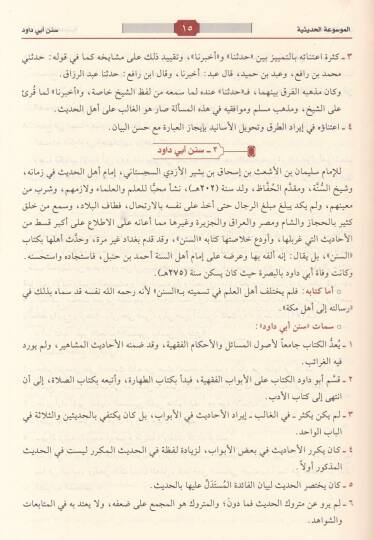 الموسوعة الحديثية
١٥
سنن أبي داود
٣ ـ كثرة اعتنائه بالتمييز بين «حدثنا» و«أخبرنا»، وتقييد ذلك على مشايخه كما في قوله: حدثني
محمد بن رافع، وعبد بن حميد، قال عبد: أخبرنا، وقال ابن رافع: حدثنا عبد الرزاق.
وكان مذهبه الفرق بينهما، فـ«حدثنا» عنده لما سمعه من لفظ الشيخ خاصة، و«أخبرنا» لما قُرئ
على الشيخ، ومذهب مسلم وموافقيه في هذه المسألة صار هو الغالب على أهل الحديث.
٤ ـ اعتناؤه في إيراد الطرق وتحويل الأسانيد بإيجاز العبارة مع حسن البيان.
٣ ـ سنن أبي داود
للإمام سليمان بن الأشعث بن إسحاق بن بشير الأزدي السجستاني، إمام أهل الحديث في زمانه،
وشيخ السُّنَّة، ومقدَّم الحُفَّاظ، ولد سنة (٢٠٢هـ)، نشأ محبًّا للعلم والعلماء ولازمهم، وشرب من
معينهم، ولم يكد يبلغ مبلغ الرجال حتى أخذ على نفسه بالارتحال، فطاف البلاد، وسمع من خلق
كثير بالحجاز والشام ومصر والعراق والجزيرة وغيرها مما أعانه على الاطلاع على أكبر قسط من
الأحاديث التي غربلها، وأودع خلاصتها كتابه «السنن»، وقد قدم بغداد غير مرة، وحدَّث أهلها بكتاب
«السنن»، بل يقال: إنه ألفه بها وعرضه على إمام أهل السنة أحمد بن حنبل، فاستجاده واستحسنه.
وكانت وفاة أبي داود بالبصرة حيث كان يسكن سنة (٢٧٥هـ).
○ أما كتابه: فلم يختلف أهل العلم في تسميته بـ«السنن» لأنه رحمه الله نفسه قد سماه بذلك في
«رسالته إلى أهل مكة».
○ سمات «سنن أبي داود»:
١ ـ يُعدُّ الكتاب جامعاً لأصول المسائل والأحكام الفقهية، وقد ضمنه الأحاديث المشاهير، ولم يورد
فيه الغرائب.
٢ ـ قسَّم أبو داود الكتاب على الأبواب الفقهية، فبدأ بكتاب الطهارة، وأتبعه بكتاب الصلاة، إلى أن
انتهى إلى كتاب الأدب.
٣ ـ لم يكن يكثر ـ في الغالب ـ إيراد الأحاديث في الأبواب، بل كان يكتفي بالحديثين والثلاثة في
الباب الواحد.
٤ ـ كان يكرر الأحاديث في بعض الأبواب، لزيادة لفظة في الحديث المكرر ليست في الحديث
المذكور أولاً.
٥ ـ كان يختصر الحديث لبيان الفائدة المُستَدَلِّ عليها بالحديث.
٦ ـ لم يرو عن متروك الحديث فما دون؛ والمتروك هو المجمع على ضعفه، ولا يعتد به في المتابعات
والشواهد.